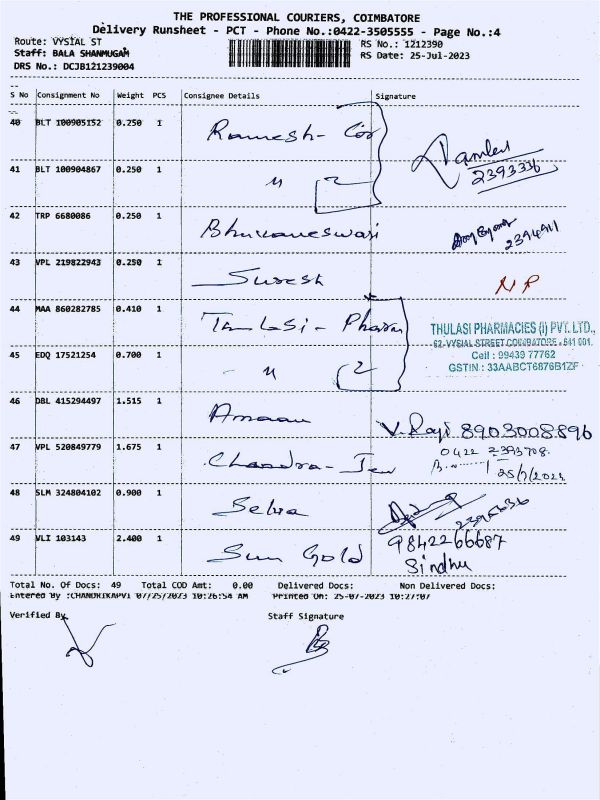 THE PROFESSIONAL COURIERS, COIMBATORE
Delivery Runsheet - PCT - Phone No.:0422-3505555 - Page No.:4
Route: VYSIAL ST
RS No.: 1212390
Staff: BALA SHANMUGAM
RS Date: 25-Jul-2023
DRS No.: DCJB121239004
S No Consignment No Weight PCS Consignee Details Signature
40 BLT 100905152 0.250 1 Ramesh- Cov
2393336
41 BLT 100904867 0.250 1 " 2
42 TRP 6680086 0.250 1 Bhuvaneswari
43 VPL 219822943 0.250 1 Suresh NP
44 MAA 860282785 0.410 1 Tulasi - Pharm
THULASI PHARMACIES (I) PVT. LTD.,
62-VYSIAL STREET COIMBATORE - 641 001.
Cell : 99439 77762
GSTIN : 33AABCT6876B1ZF
45 EDQ 17521254 0.700 1 " 2
46 DBL 415294497 1.515 1 Amaan V.Raji 8903008896
47 VPL 520849779 1.675 1 Chandra-Jew
0422 2393708
25/7/2023
48 SLM 324804102 0.900 1 Selva
49 VLI 103143 2.400 1 Sun Gold 9842266687
Sindhu
Total No. Of Docs: 49 Total COD Amt: 0.00 Delivered Docs: Non Delivered Docs:
Entered By :CHANDRIKAPV1 07/25/2023 10:26:54 AM Printed On: 25-07-2023 10:27:07
Verified By
Staff Signature